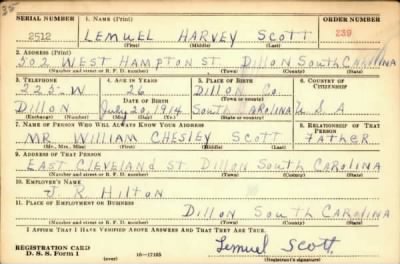 35
SERIAL NUMBER 1. NAME (Print) ORDER NUMBER
2512 LEMUEL HARVEY SCOTT 239
(First) (Middle) (Last)
2. ADDRESS (Print)
502 WEST HAMPTON ST. DILLON SOUTH CAROLINA
(Number and street or R. F. D. number) (Town) (County) (State)
3. TELEPHONE 4. AGE IN YEARS 5. PLACE OF BIRTH 6. COUNTRY OF CITIZENSHIP
225-W 26 DILLON CO.
DATE OF BIRTH (Town or county)
DILLON JULY 20, 1914 SOUTH CAROLINA U.S.A
(Exchange) (Number) (Mo.) (Day) (Yr.) (State or country)
7. NAME OF PERSON WHO WILL ALWAYS KNOW YOUR ADDRESS 8. RELATIONSHIP OF THAT PERSON
MR. WILLIAM CHESLEY SCOTT FATHER
(Mr., Mrs., Miss) (First) (Middle) (Last)
9. ADDRESS OF THAT PERSON
EAST CLEVELAND ST. DILLON SOUTH CAROLINA
(Number and street or R. F. D. number) (Town) (County) (State)
10. EMPLOYER'S NAME
J. R. HILTON
11. PLACE OF EMPLOYMENT OR BUSINESS
DILLON SOUTH CAROLINA
(Number and street or R. F. D. number) (Town) (County) (State)
I AFFIRM THAT I HAVE VERIFIED ABOVE ANSWERS AND THAT THEY ARE TRUE.
REGISTRATION CARD
D. S. S. Form 1 (over) 16-17105 Lemuel Scott
(Registrant's signature)